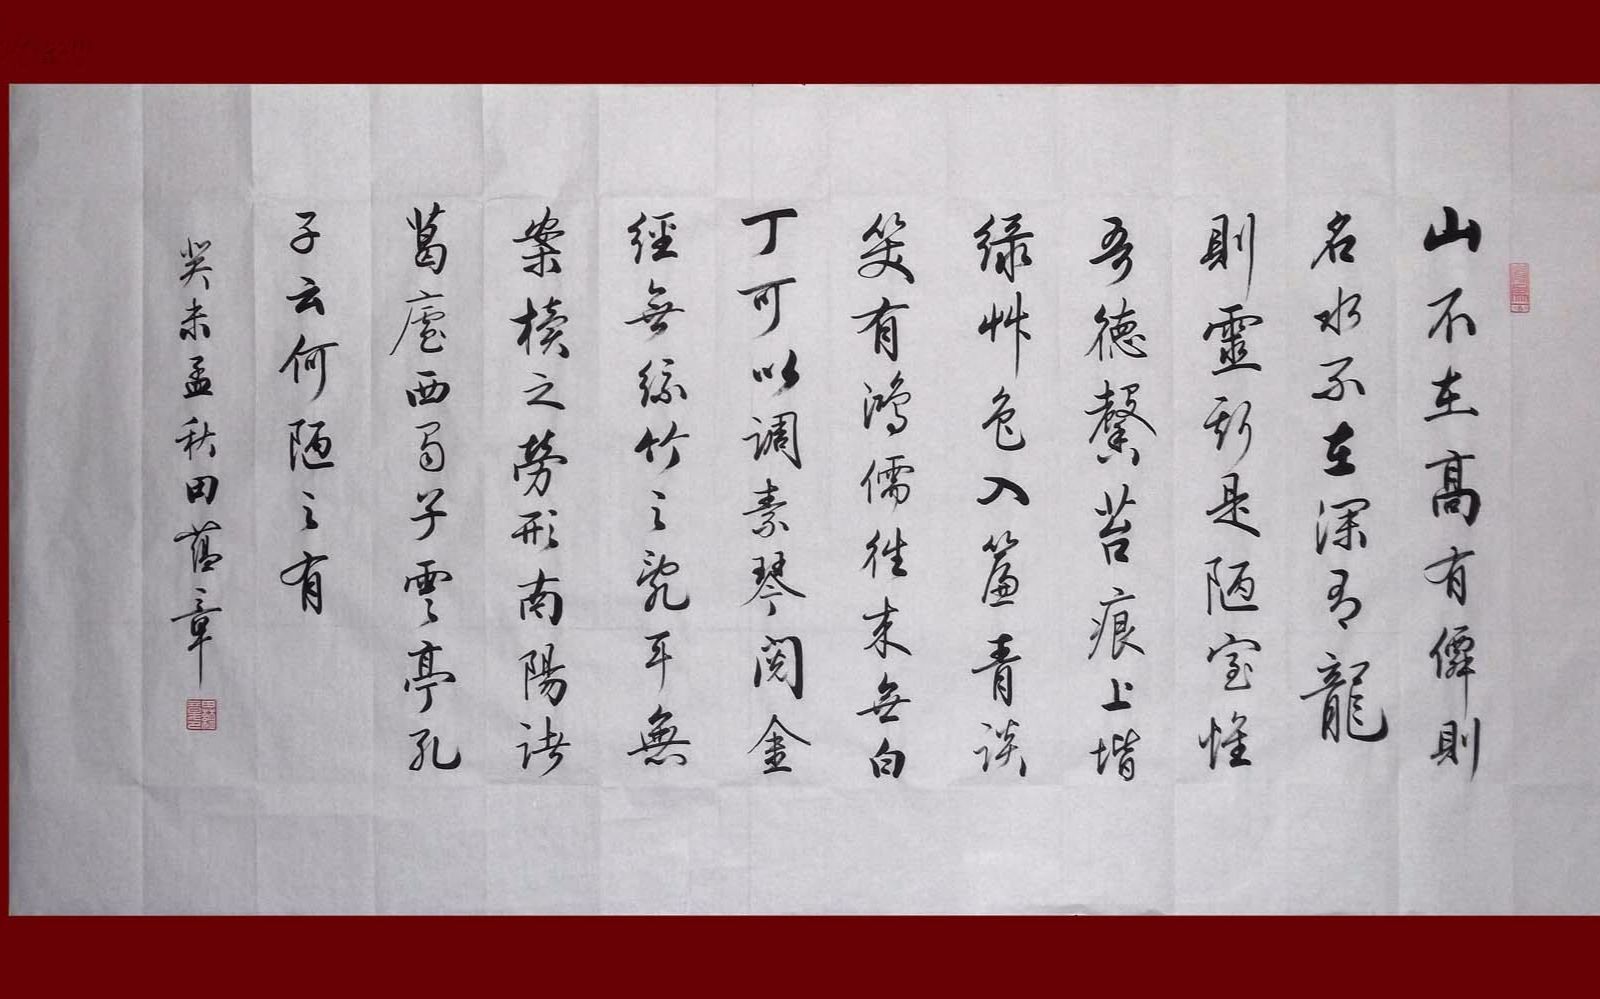 山不在高有僊則
名水不在深有龍
則靈斯是陋室惟
吾德馨苔痕上堦
綠艸色入簾青談
笑有鴻儒往来無白
丁可以調素琴閱金
經無絲竹之亂耳無
案牘之勞形南陽諸
葛廬西蜀子雲亭孔
子云何陋之有
癸未孟秋田蕴章